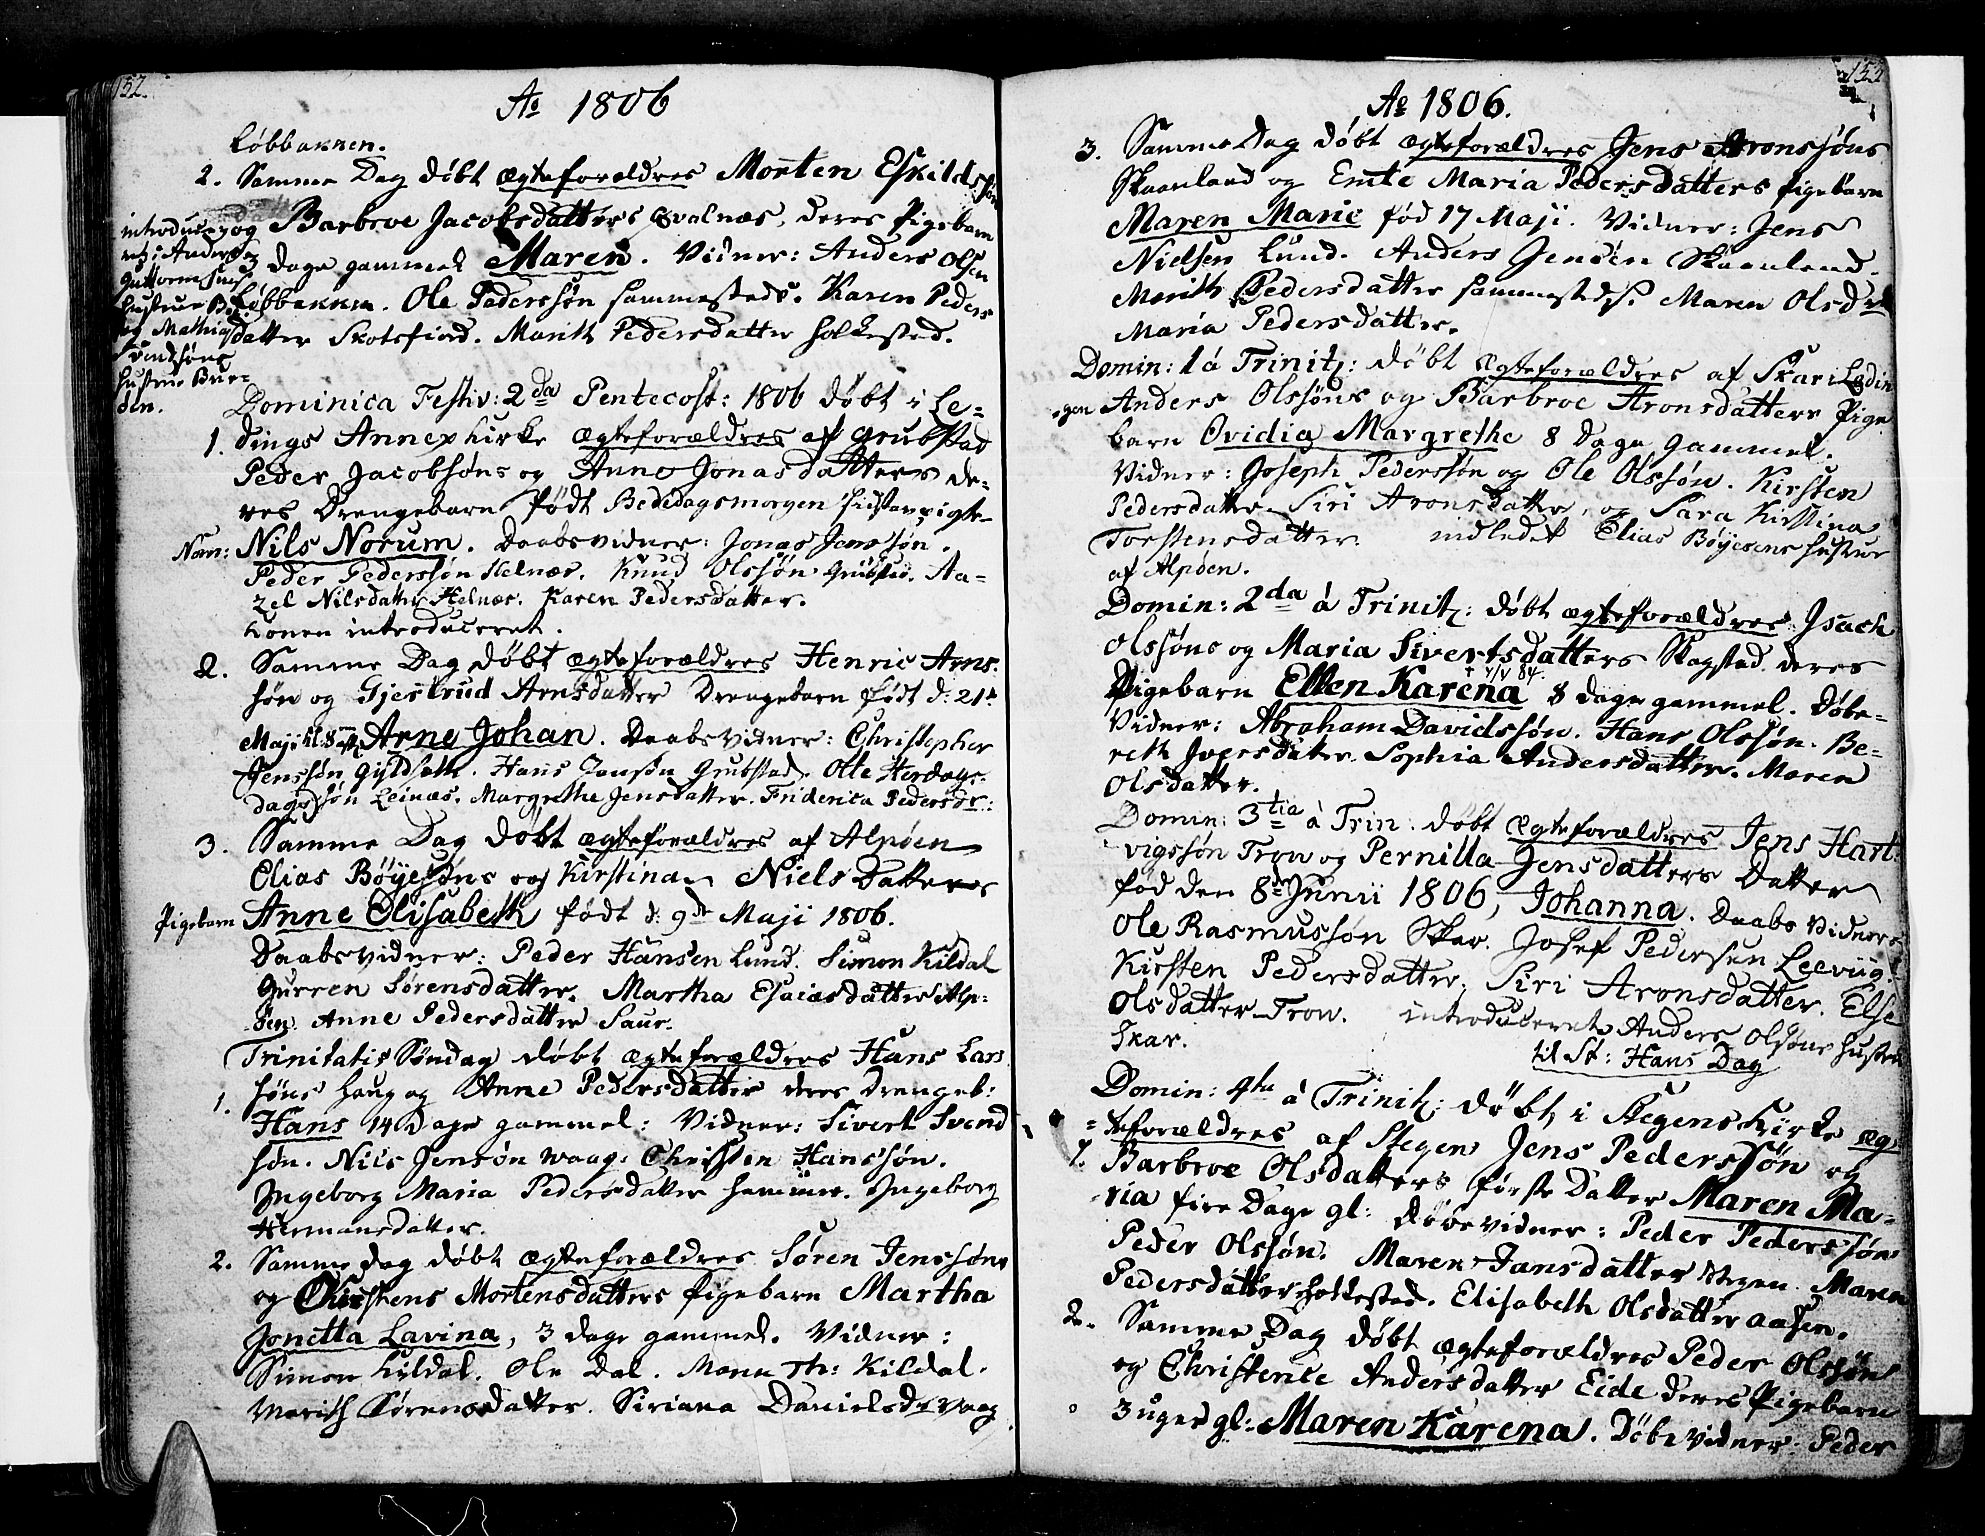 152.
Ao 1806
Løbbakken.
2. Samme Dag døbt ægteforældres Morten Eskilds
søn
og Barbroe Jacobsdatters Evalnæs, deres Pigebarn
dage gammel Maren. Vidner: Anders Olsen
Løbbakken. Ole Pederssøn sammesteds. Karen Peders
datter Skotsfiord. Marith Pedersdatter Holkestad.
introduce-
ret: Anders
Guttormsens
hustrue
og Mathias
Svendsøns
hustrue Bur-
øen.
Dominica Festiv: 2da Pentecost: 1806 døbt i Le-
1. dings Annexkirke ægteforældres af Grubstad
Peder Jacobsøns og Anne Jonasdatters de-
res Drengebarn født Bededagsmorgen
Navn: Nils Norum. Daabsvidner: Jonas Jenssøn.
Peder Pederssøn Helnæs. Knud Olssøn Grubstad. Aa-
zel Nilsdatter Helnæs. Karen Pedersdatter.
Konen introduceret.
2. Samme Dag døbt ægteforældres Henric Arns-
søn og Gjertrud Arnsdatter Drengebarn født d: 21de
Maji kl: 8 Arne Johan. Daabsvidner: Christopher
Jenssøn Gyldseth. Hans Jensen Grubstad. Olle Herdags-
dagssøn Leinæs. Margrethe Jensdatter. Friderica Pedersdr:
3. Samme Dag døbt ægteforældres af Alpøen
Elias Bøyesøns og Kirstina Niels Datters
Pigebarn Anne Elisabeth født d: 9de Maji 1806.
Daabsvidner: Peder Hansen Lund. Simon Kildal
Gurren Sørensdatter. Martha Esaiasdatter Alp-
øen. Anne Pedersdatter Saur.
Trinitatis Søndag døbt ægteforældres Hans Lars
1. søns Haug og Anne Pedersdatter deres Drengeb:
Hans 14 Dage gammel: Vidner: Sivert Svend
søn. Nils Jensøn Waag. Christen Hanssøn.
Ingeborg Maria Pedersdatter Hammer. Ingeborg
Hermansdatter.
2. Samme dag døbt ægteforældres Søren Jenssøns
og Chirstens Mortensdatters Pigebarn Martha
Jonetta Lavina, 3 dage gammel. Vidner:
Simon Kildal. Ole Dal. Maren Kildal.
Marith Sørensdatter. Siriana Danielsdr Waag
Ao 1806.
3. Samme Dag døbt ægteforældres Jens Aronssøns
Skaanland og Emte Maria Pedersdatters Pigebarn
Maren Marie fød 17 Maji. Vidner: Jens
Nielsen Lund. Anders Jensen Skaanland.
Marith Pedersdatter sammesteds. Maren Olsdr
Maria Pedersdatter.
Domin: 1 á Trinit: døbt ægteforældres af Skar i Leding
Anders Olssøns og Barbroe Aronsdatters Pige
barn Ovidia Margrethe 8 Dage gammel.
Vidner: Joseph Pederssøn og Ole Olssøn. Kirsten
Pedersdatter. Siri Aronsdatter, og Sara Kirstina
Torstensdatter. indledet Elias Bøyesens hustrue
af Alpøen.
Domin: 2da á Trinit: døbt ægteforældres Isach
Olssøns og Maria Sivertsdatters Skagstad deres
Pigebarn Ellen Karena 8 dage gammel. Døbe-
† 1/V 84.
Vidner: Abraham Davidssøn. Hans Olssøn. Be-
reth Iversdatter. Sophia Andersdatter. Maren
Olsdatter.
Domin: 3tia á Trin: døbt ægteforældres Jens Hart-
vigssøn Trow og Pernilla Jensdatters Datter
fød den 8de Junii 1806, Johanna. Daabs vidner:
Ole Rasmussøn Skar. Josef Pedersen Leeviig.
Kirsten Pedersdatter, Siri Aronsdatter. Else
Olsdatter Trow. introduceret Anders Olssøns hustrue
Skar.
til St: Hans Dag
Domin: 4ta á Trinit: døbt i Stegens Kirke æg-
teforældres af Stegen Jens Pederssøn og
1. Barbroe Olsdatters første Datter Maren Ma-
ria fire Dage gl: døbevidner: Peder Pederssøn
Peder Olssøn. Maren Jansdatter Stegen. Maren
Pedersdatter Holkestad. Elisabeth Olsdatter Aasen.
2. Samme Dag døbt ægteforældres Peder Olssøn
og Christence Andersdatter Eide deres Pigebarn
3 uger gl: Maren Karena. Døbe vidner: Peder